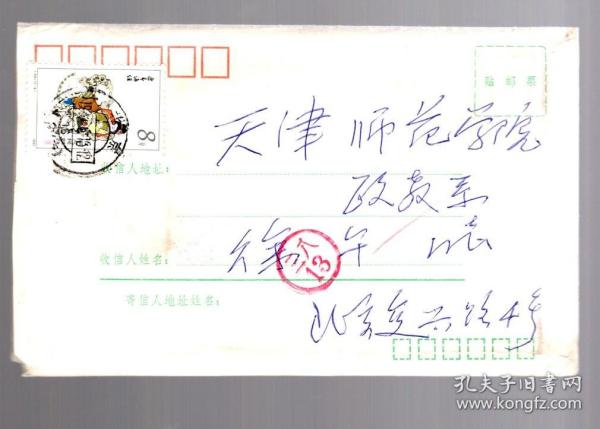 贴邮票
8分
收信人地址：
天津师范学院
政教系
收信人姓名：
徐
13
寄信人地址姓名：
北京复兴路4号
孔夫子旧书网
www.kongfz.com